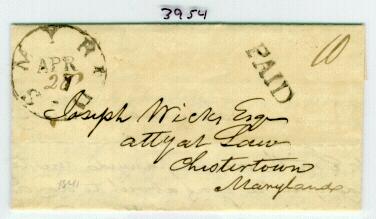 3954
SMYR
APR
PAID
10
Joseph Wicks Esqr
atty at Law
Chestertown
Maryland
1841